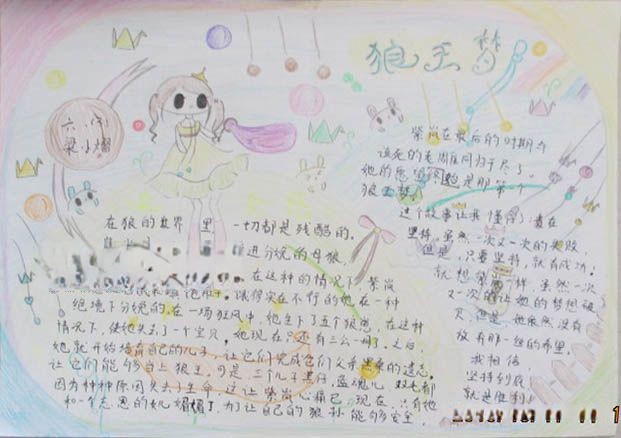 狼王梦
六(8)
梁小熠
在狼的世界里一切都是残酷的。
进分娩的母狼。
在这种的情况下,紫岚
饿得实在不行的她在一种
绝境下分娩的。在一场狂风中,她生下了五个狼崽,在这种
情况下,使她失去了一个宝贝,她现在只还有三公一母了。之后,
她就开始培育自己的儿子,让它们完成它们父亲黑桑的遗志,
让它们能够当上狼王。可是,三个儿子黑仔、蓝魂儿、双毛都
因为种种原因失去了生命,这让紫岚心痛已,现在,只有她
和一个不思的女儿媚媚了,为了让自己的狼孙能够安全,
紫岚在最后的时期与
该死的老雕同归于尽了。
她的愿望
狼王梦。
这个故事让我懂得了,贵在
坚持,虽然一次又一次的失败,
但是,只要坚持,就有成功。
就想紫岚一样,虽然一次
又一次的让她的梦想破
灭,但是,她依然没有
放弃那一丝的希望。
我相信,
坚持到底,
就是胜利!